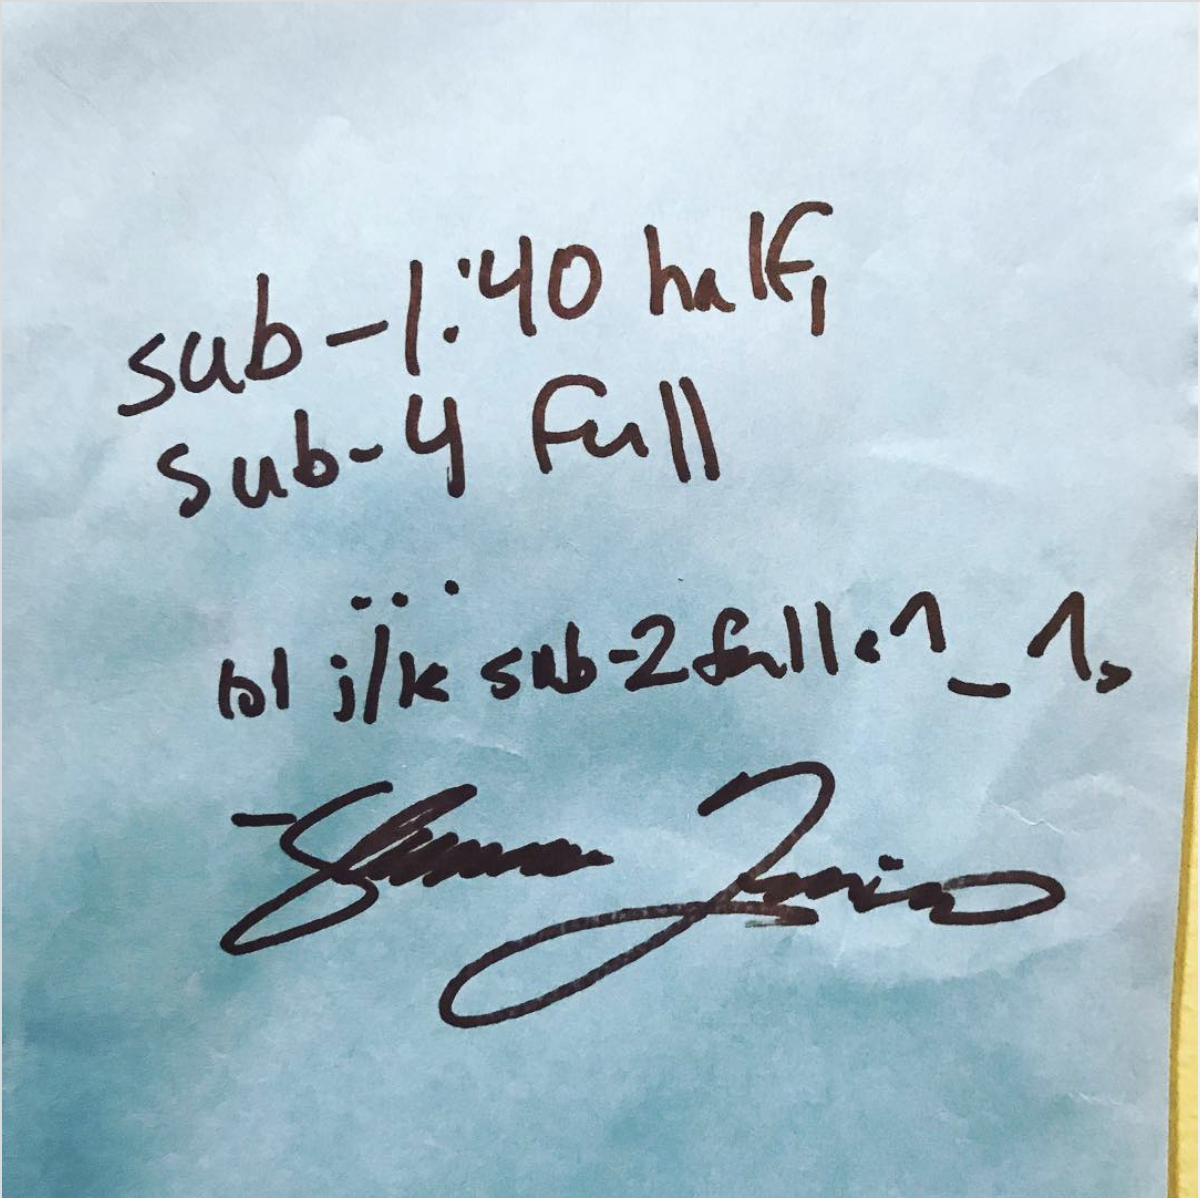 sub-1:40 half,
sub-4 full
...
lol j/k sub-2 full <^_^>